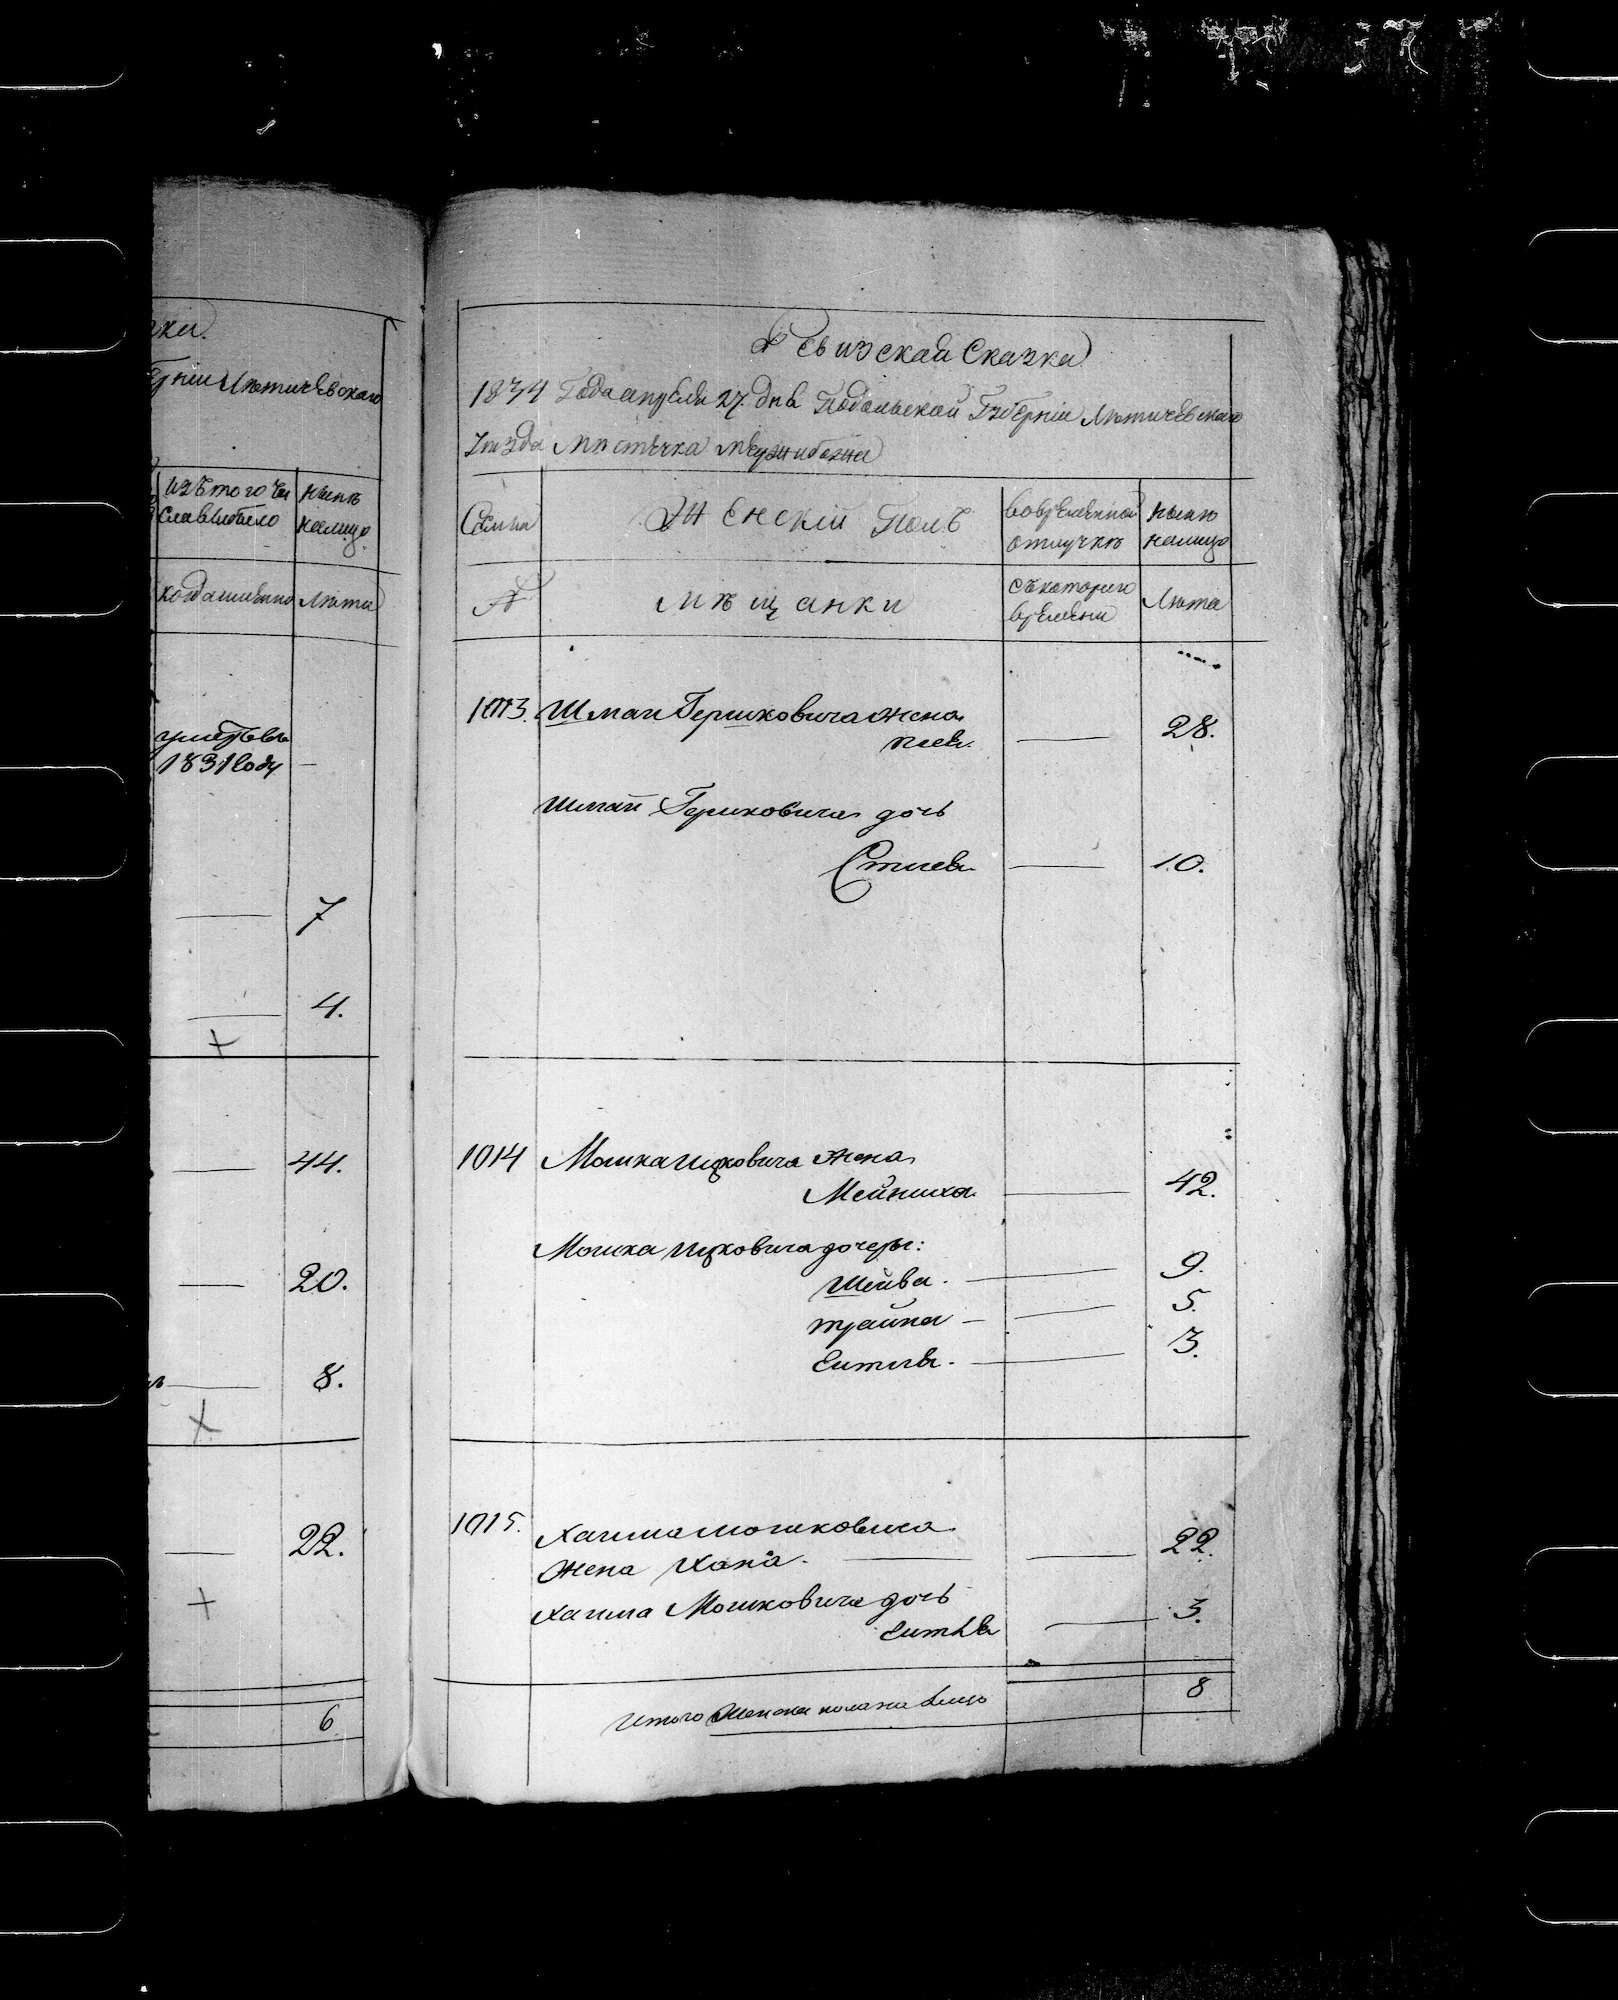 рніи Лѣтичевскаго
изъ того чи
славыбыло
нынѣ
налицо
когда именно
Лѣта
умертвъ
1831 году
7
4.
44.
20.
8.
22.
6
Ревизская Сказка
1834 Года апреля 27. дня Подольской Губерніи Летичевскаго
уѣзда мѣстечка межибожа
Семьи
Женскій Полъ
вовременной
отлучкѣ
нынѣ
налицо
№
мѣщанки
съкотораго
времени
Лѣта
1013. Шмаи Гершковича жена
28.
Шмаи Гершковича дочь
10.
1014 Мошка Ицковича жена
Мейниха. 42.
Мошка Ицковича дочеры:
Шейва. 9.
трайна 5.
Ентля. 3.
1015. Хаима Мошковича
жена Хана. 22.
Хаима Мошковича дочь
3.
Итого женска пола на лицо 8